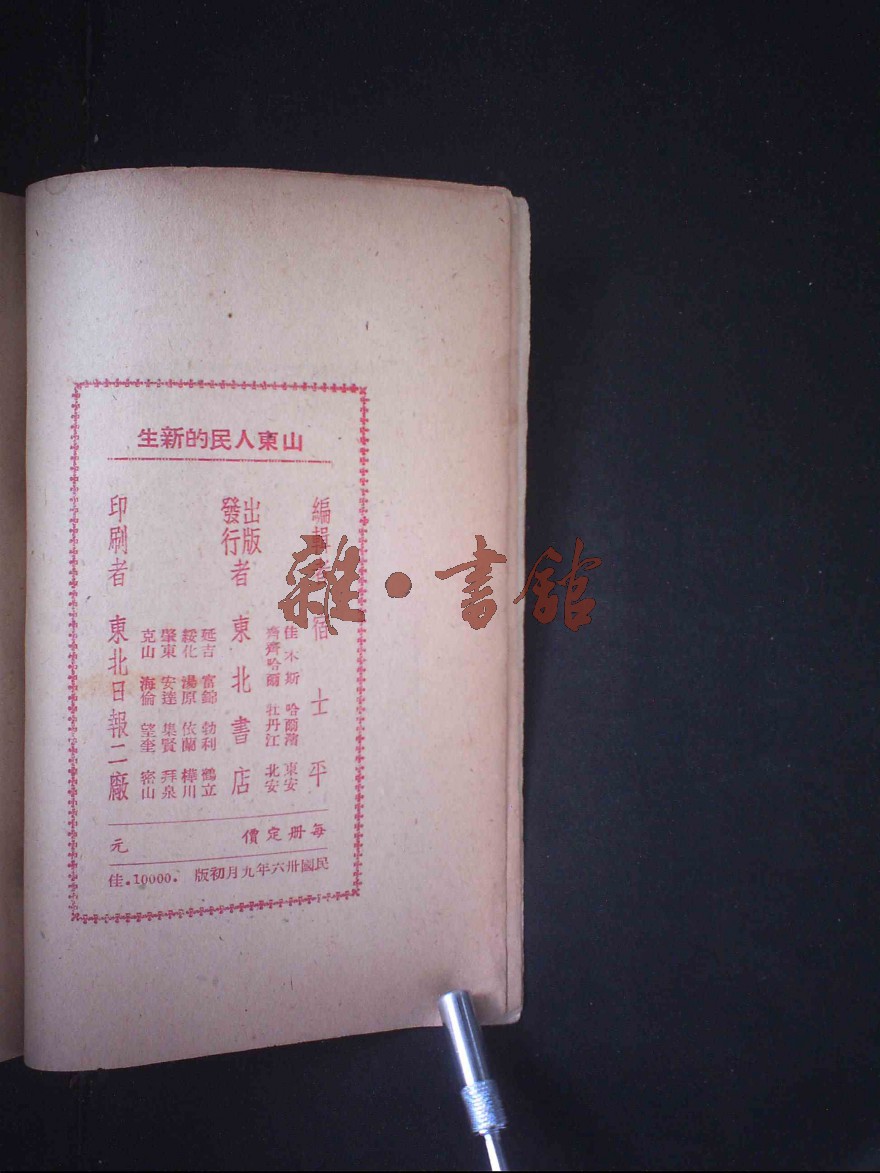 山東人民的新生
編輯者 宿士平
佳木斯 哈爾濱 東安
齊齊哈爾 牡丹江 北安
出版
發行
者 東北書店
延吉 富錦 勃利 鶴立
綏化 湯原 依蘭 樺川
肇東 安達 集賢 拜泉
克山 海倫 望奎 密山
印刷者 東北日報二廠
每册定價 元
民國卅六年九月初版 .10000.佳
雜·書館